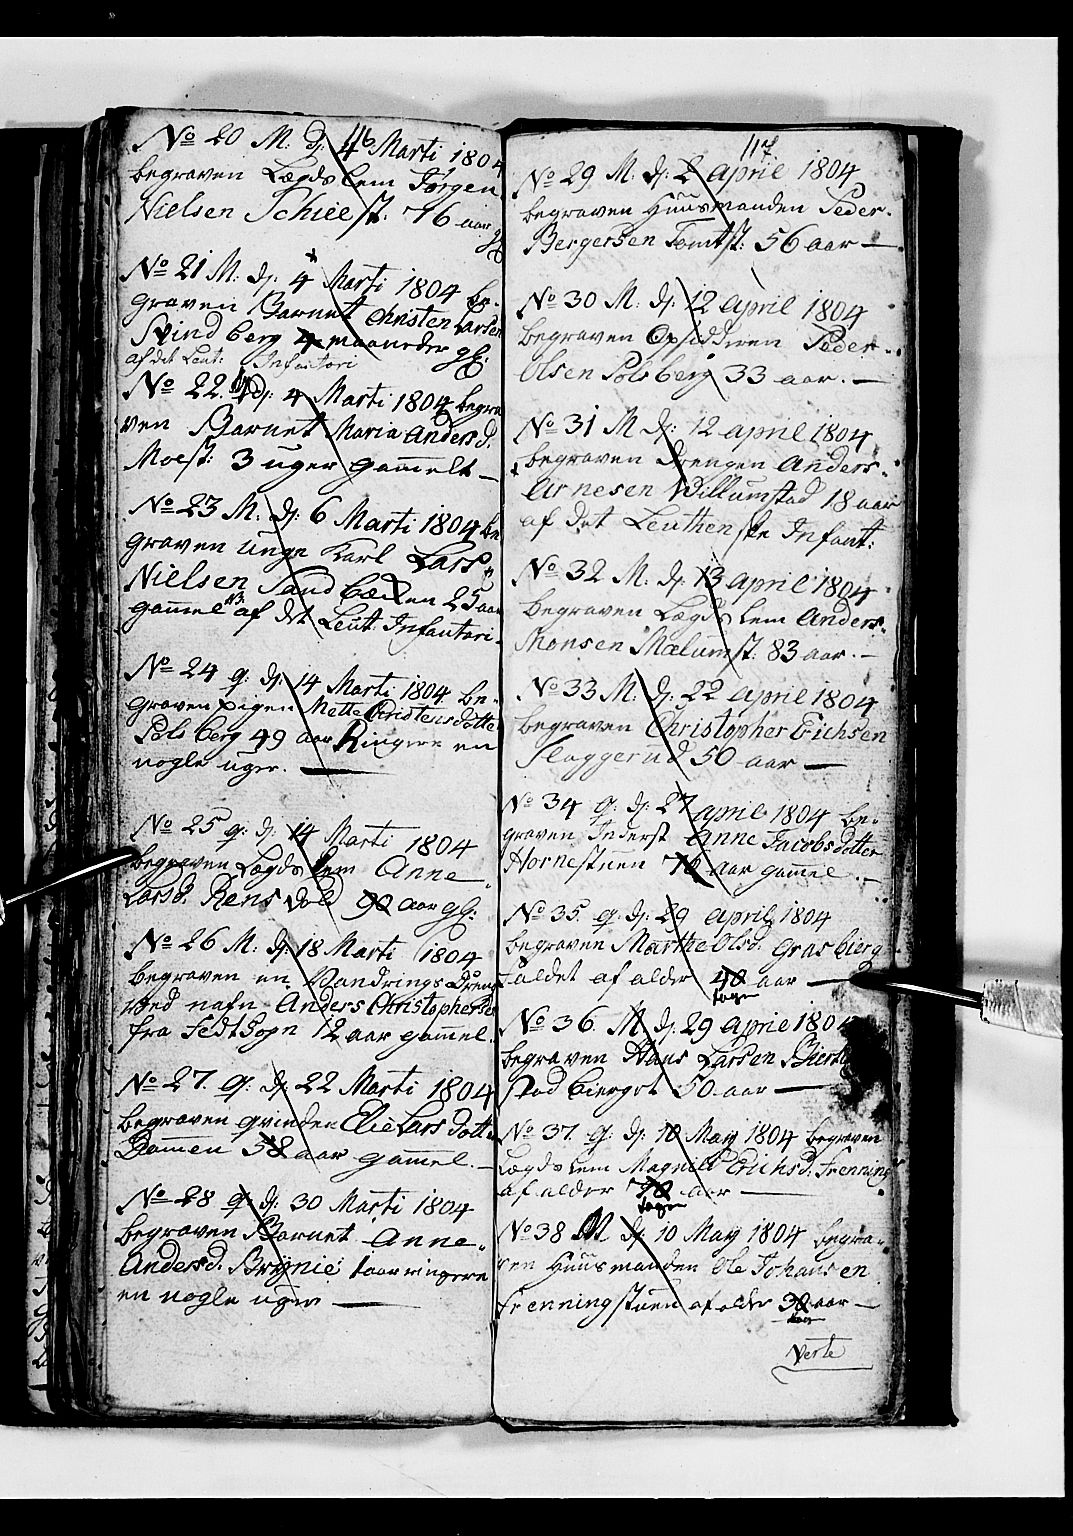 No 20 M. dj. 4 Marti 1804
begraven Lægdslem Jørgen
Nielsen Schiie st: 76 aar gl
No 21 M: dj. 4 Marti 1804 be-
graven Barnet Christen Larsen
berg 4 maaneder gl:
af det Leut: Infanteri
No 22. dj: 4 Marti 1804 begra
ven Barnet Maria Andersd.
Moest: 3 uger gammelt —
No 23 M. dj. 6 Marti 1804 be
graven unge Karl Lars
Nielsen Sandbæcken 25 aar
gammel af det Leut. Infanteri.
No 24 q: dj: 14 Marti 1804 be-
graven pigen Mette Christensdotter
Polsberg 49 aar Ringere en
nogle uger. —
No 25 q: dj: 14 Marti 1804
begraven Lægdslem Anne
Larsd. Rensvold 90 aar gl:
No 26 M: dj. 18 Marti 1804
begraven en Vandrings Dreng
ved nafn Anders Christophersen
fra Fedt Sogn 12 aar gammel.
No 27. q: dj 22 Marti 1804
begraven qvinden Elie Larsdotter
Dammen 58 aar gammel. —
No 28 q: dj: 30 Marti 1804
begraven Barnet Anne
Andersd. Brynie 1 aar ringere
en nogle uger —
117
No 29 M: dj. 2 April 1804
begraven Huusmanden Peder
Bergersen Tomtst: 56 aar —
No 30 M: dj: 12 April 1804
begraven Opsidderen Peder
Olsen Polsberg 33 aar. —
No 31 M dj: 12 April 1804
begraven Drengen Anders
Arnesen Willumstad 18 aar
af det Leuthenske Infant:
No 32 M: dj. 13 April 1804
begraven Lægdslem Anders
Monsen Mælumst: 83 aar. —
No 33 M: dj. 22 April 1804
begraven Christopher Erichsen
Flaggerud 50 aar —
No 34 q: dj: 27 April 1804 be-
graven Inderst Anne Jacobsdotter
Hornestuen aar gammel. —
No 35. q: dj: 29 April 1804
begraven Marthe Olsd. Grasbierg
faldet af alder 40 aar —
No 36. M. dj. 29 April 1804
begraven Hans Larsen
stad biergot 50 aar —
No 37. q: dj: 10 May 1804 begraven
Lægdslem Magnild Erichsd: Frenning
af alder 70 aar —
No 38 M dj: 10 May 1804 begra-
ven Huusmanden Ole Johansen
Frenningstuen af alder 30 aar —
Verte